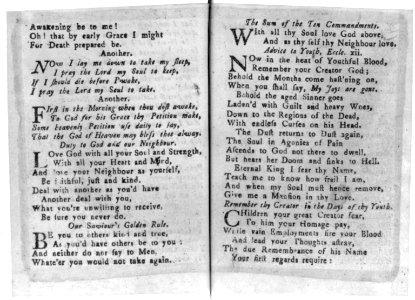 Awakening be to me!
Oh! that by early Grace I might
For Death prepared be.
Another.
NOw I lay me down to take my sleep,
I pray the Lord my Soul to keep,
If I should die before I wake,
I pray the Lord my Soul to take.
Another.
FIrst in the Morning when thou dost awake,
To God for his Grace thy Petition make,
Some heavenly Petition use daily to say,
That the God of Heaven may bless thee alway.
Duty to God and our Neighbour.
LOve God with all your Soul and Strength,
With all your Heart and Mind,
And love your Neighbour as yourself,
Be faithful, just and kind.
Deal with another as you'd have
Another deal with you,
What you're unwilling to receive,
Be sure you never do.
Our Saviour's Golden Rule.
BE you to others kind and true,
As you'd have others be to you:
And neither do nor say to Men,
Whate'er you would not take again.
The Sum of the Ten Commandments.
WIth all thy Soul love God above,
And as thy self thy Neighbour love.
Advice to Youth, Eccle. xii.
NOw in the heat of Youthful Blood,
Remember your Creator God;
Behold the Months come hast'ning on,
When you shall say, My Joys are gone.
Behold the aged Sinner goes
Laden'd with Guilt and heavy Woes,
Down to the Regions of the Dead,
With endless Curses on his Head.
The Dust returns to Dust again,
The Soul in Agonies of Pain
Ascends to God not there to dwell,
But hears her Doom and sinks to Hell.
Eternal King I fear thy Name,
Teach me to know how frail I am,
And when my Soul must hence remove,
Give me a Mansion in thy Love.
Remember thy Creator in the Days of thy Youth.
CHildren your great Creator fear,
To him your Homage pay,
While vain Employments fire your Blood
And lead your Thoughts astray,
The due Remembrance of his Name
Your first regards require: